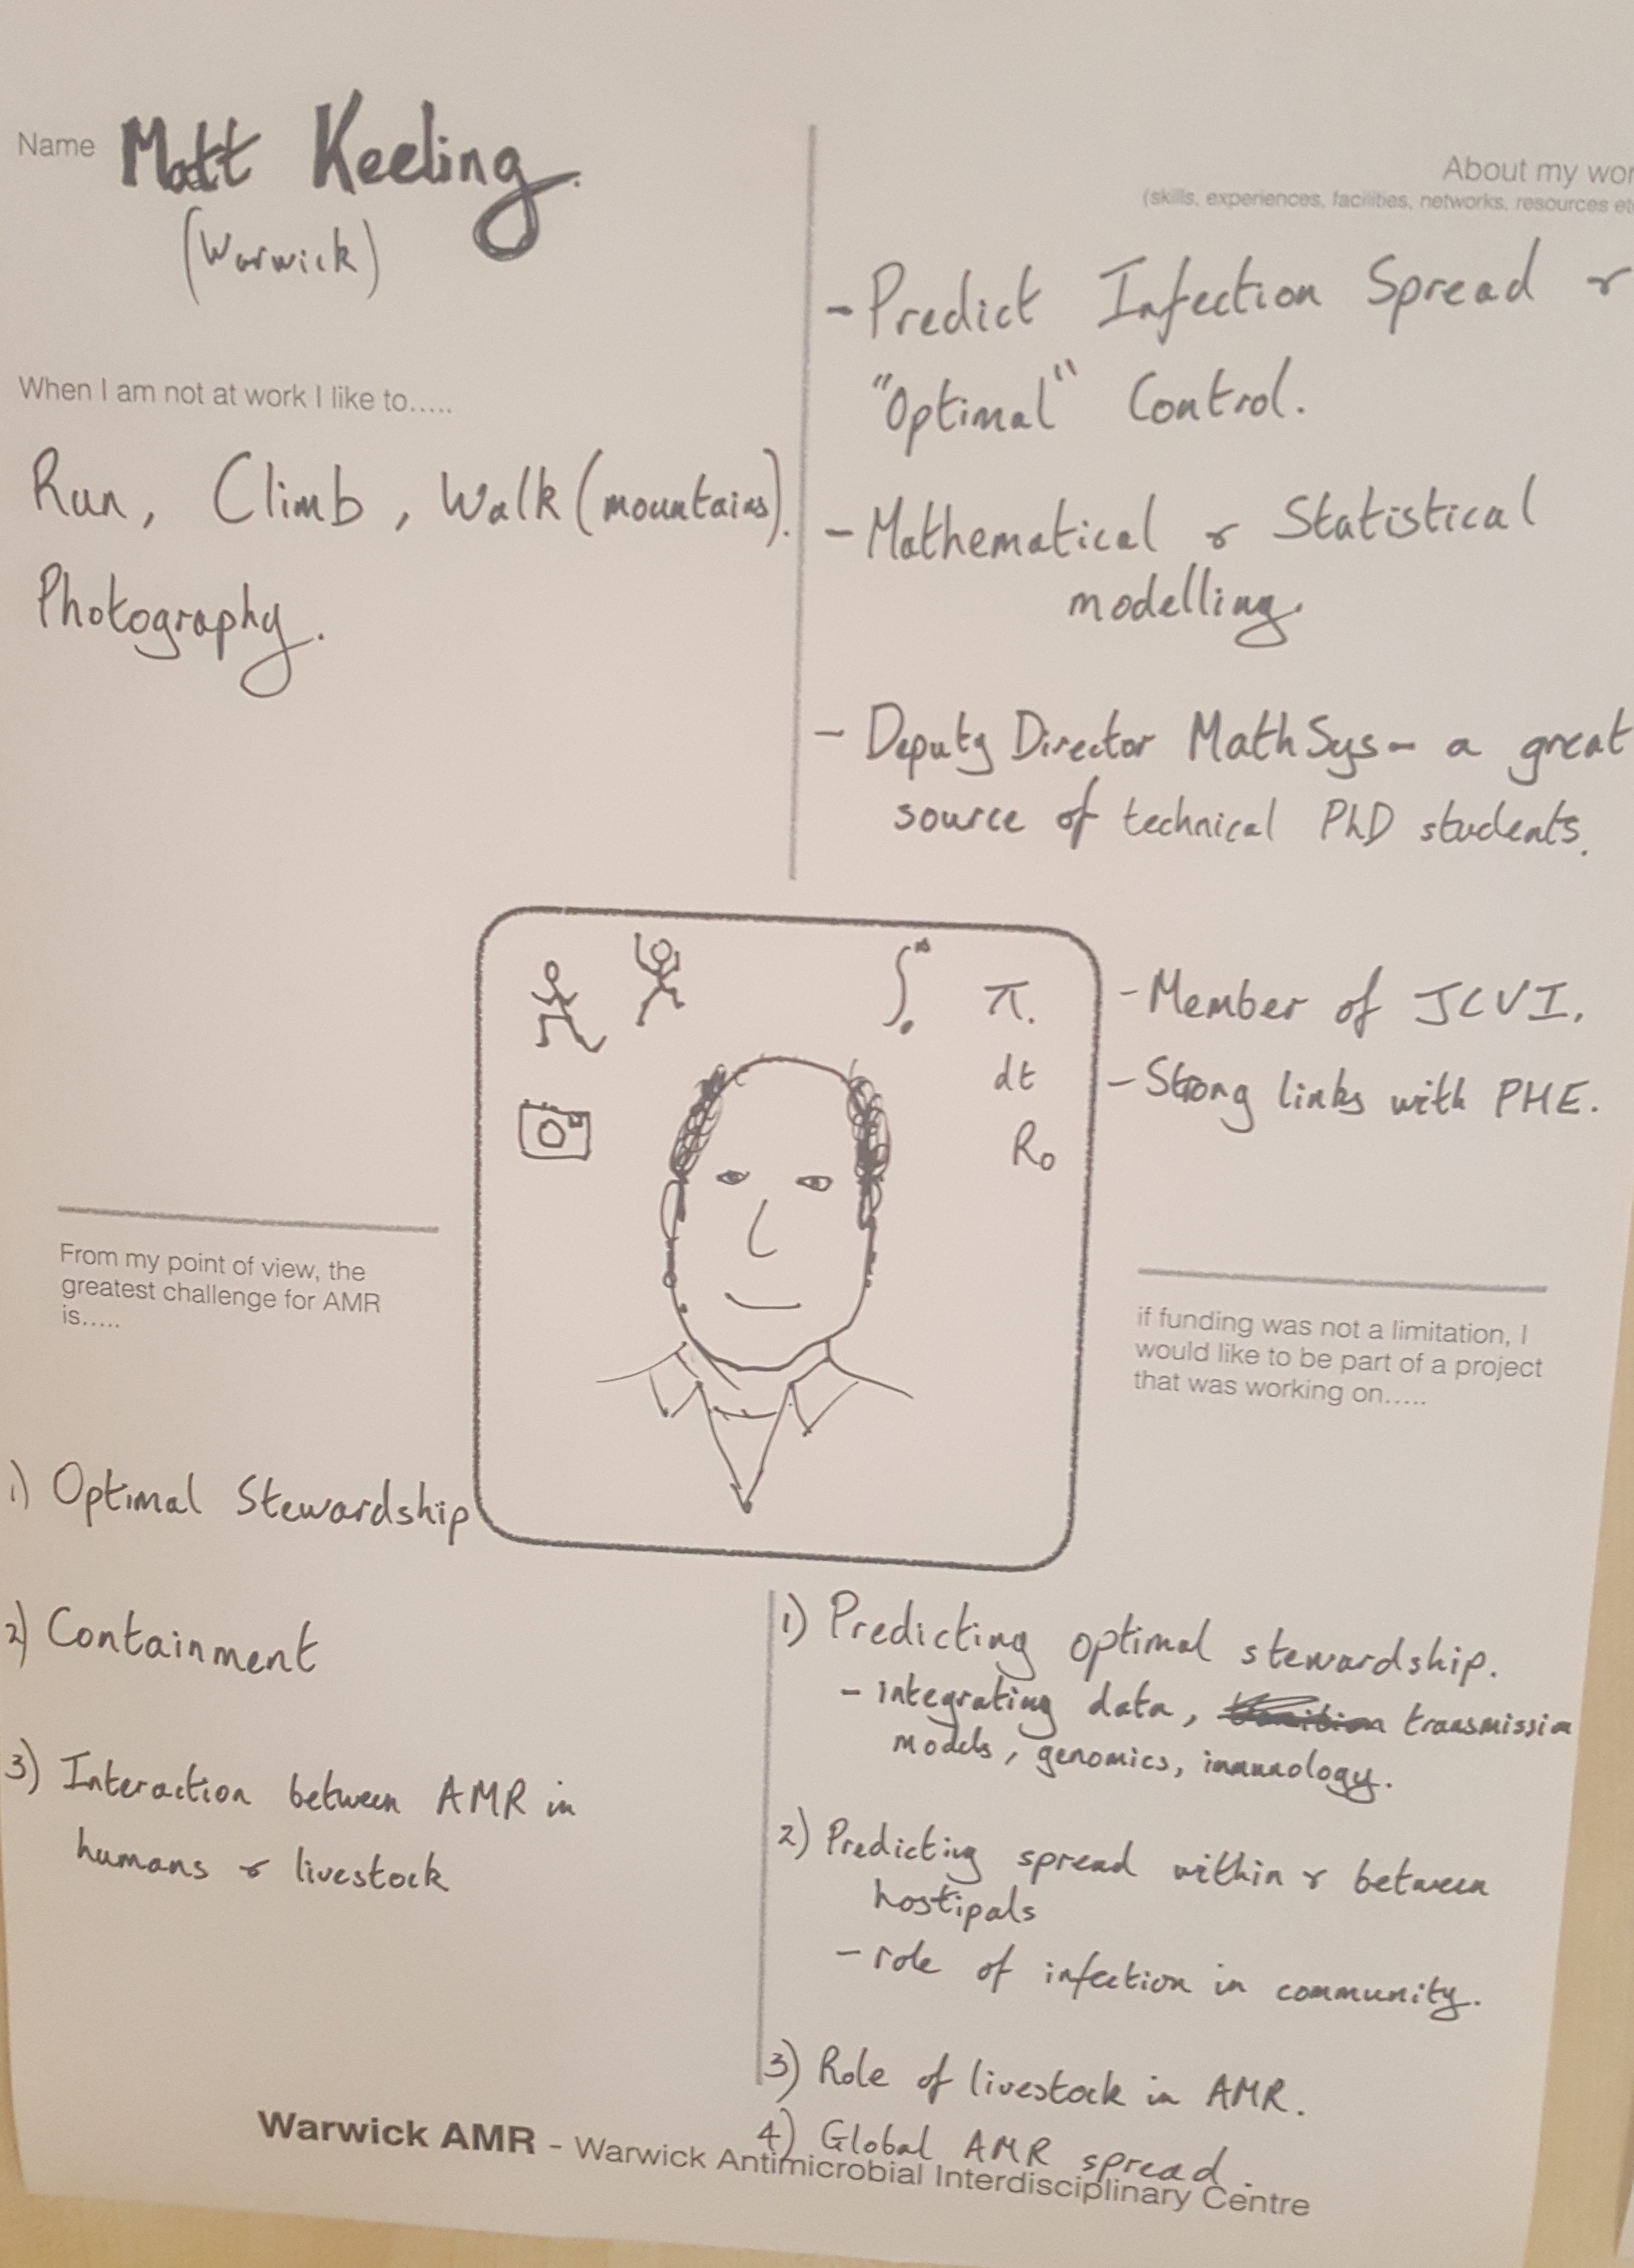 Name Matt Keeling.
(Warwick)
When I am not at work I like to.....
Run, Climb, Walk (mountains).
Photography.
About my wor
(skills, experiences, facilities, networks, resources et
- Predict Infection Spread &
"Optimal" Control.
- Mathematical & Statistical
modelling.
- Deputy Director MathSys - a great
source of technical PhD students.
- Member of JCVI.
- Strong links with PHE.
∫ π.
dt
R0
From my point of view, the
greatest challenge for AMR
is.....
1) Optimal Stewardship
2) Containment
3) Interaction between AMR in
humans & livestock
if funding was not a limitation, I
would like to be part of a project
that was working on.....
1) Predicting optimal stewardship.
- integrating data, transmission
models, genomics, immunology.
2) Predicting spread within & between
hostipals
- role of infection in community.
3) Role of livestock in AMR.
4) Global AMR spread.
Warwick AMR - Warwick Antimicrobial Interdisciplinary Centre